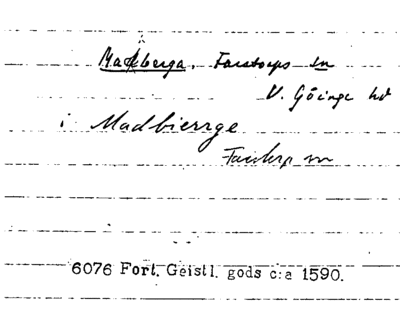 Madberga. Farstorps sn
V. Göinge hd
i Madbierrge
Farstorp sn
6076 Fort. Geistl. gods c:a 1590.